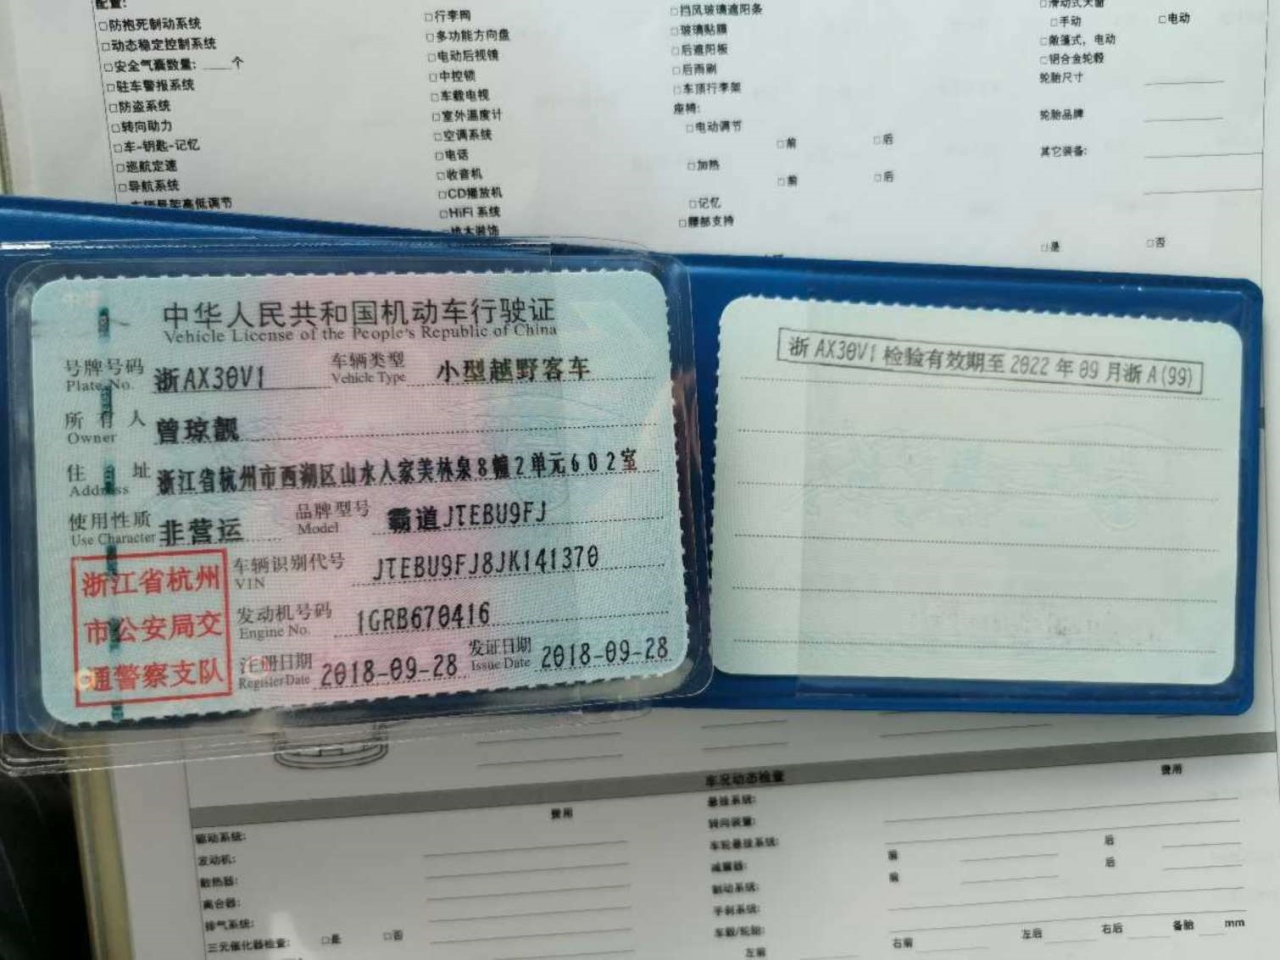 配置:
□防抱死制动系统
□动态稳定控制系统
□安全气囊数量: ____个
□驻车警报系统
□防盗系统
□转向助力
□车-钥匙-记忆
□巡航定速
□导航系统
□行李网
□多功能方向盘
□电动后视镜
□中控锁
□车载电视
□室外温度计
□空调系统
□电话
□收音机
□CD播放机
□HiFi 系统
□挡风玻璃遮阳条
□玻璃贴膜
□后遮阳板
□后雨刷
□车顶行李架
座椅:
□电动调节
□前 □后
□加热
□前 □后
□记忆
□腰部支持
□滑动式天窗
□手动 □电动
□敞篷式,电动
□铝合金轮毂
轮胎尺寸
轮胎品牌
其它装备:
□是 □否
中华人民共和国机动车行驶证
Vehicle License of the People's Republic of China
号牌号码 浙AX30V1 车辆类型 小型越野客车
Plate No. Vehicle Type
所有人 曾琼靓
Owner
住址 浙江省杭州市西湖区山水人家美林泉8幢2单元602室
Address
使用性质 非营运 品牌型号 霸道JTEBU9FJ
Use Character Model
浙江省杭州
市公安局交
通警察支队
车辆识别代号 JTEBU9FJ8JK141370
VIN
发动机号码 1GRB670416
Engine No.
注册日期 2018-09-28 发证日期 2018-09-28
Register Date Issue Date
浙AX30V1检验有效期至2022年09月浙A(99)
车况动态检查
费用
费用
驱动系统:
发动机:
散热器:
离合器:
排气系统:
三元催化器检查: □是 □否
悬挂系统:
转向装置:
车轮悬挂系统:
前 后
减震器:
前 后
制动系统:
手刹系统:
车毂/轮胎:
左前 右前 左后 右后 备胎 mm